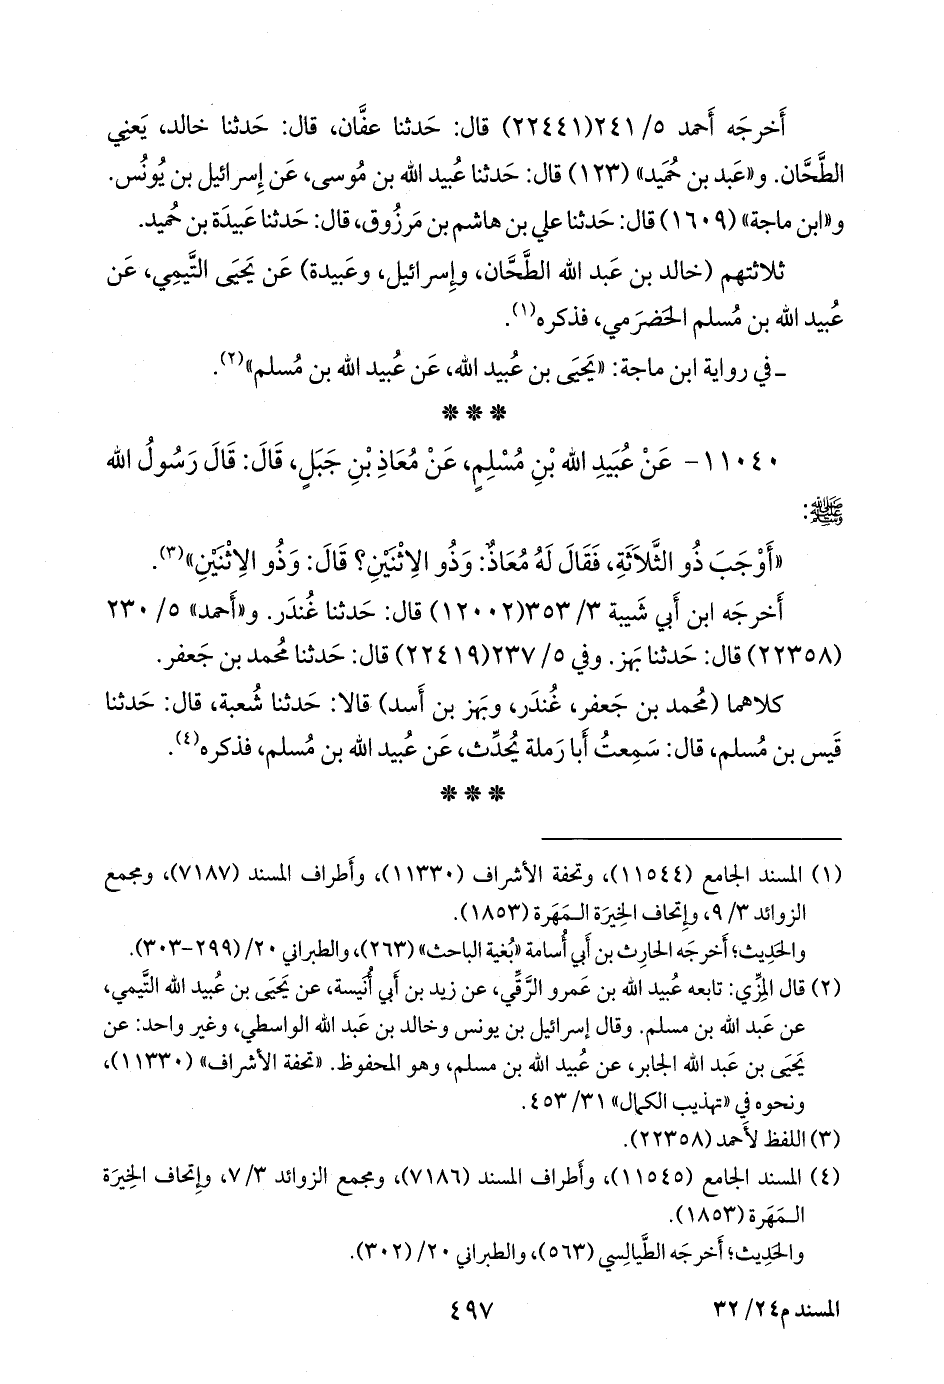 أَخرجَه أَحمد ٥/ ٢٤١(٢٢٤٤١) قال: حَدثنا عفَّان، قال: حَدثنا خالد، يَعني
الطَّحَّان. و«عَبد بن حُميد» (١٢٣) قال: حَدثنا عُبيد الله بن مُوسى، عَن إِسرائيل بن يُونُس.
و«ابن ماجة» (١٦٠٩) قال: حَدثنا علي بن هاشم بن مَرزُوق، قال: حَدثنا عَبيدَة بن حُميد.
ثلاثتهم (خالد بن عَبد الله الطَّحَّان، وإِسرائيل، وعَبيدة) عَن يَحيَى التَّيمِي، عَن
عُبيد الله بن مُسلم الحَضرَمي، فذكره(١).
ـ في رواية ابن ماجة: «يَحيَى بن عُبيد الله، عَن عُبيد الله بن مُسلم»(٢).
* * *
١١٠٤٠- عَنْ عُبَيدِ الله بْنِ مُسْلِمٍ، عَنْ مُعَاذِ بْنِ جَبَلٍ، قَالَ: قَالَ رَسُولُ الله
ﷺ:
«أَوْجَبَ ذُو الثَّلَاثَةِ، فَقَالَ لَهُ مُعَاذٌ: وَذُو الِاثْنَيْنِ؟ قَالَ: وَذُو الِاثْنَيْنِ»(٣).
أَخرجَه ابن أَبي شَيبة ٣/ ٣٥٣(١٢٠٠٢) قال: حَدثنا غُندَر. و«أَحمد» ٥/ ٢٣٠
(٢٢٣٥٨) قال: حَدثنا بَهز. وفي ٥/ ٢٣٧(٢٢٤١٩) قال: حَدثنا مُحمد بن جَعفر.
كلاهما (مُحمد بن جَعفر، غُندَر، وبَهز بن أَسد) قالا: حَدثنا شُعبة، قال: حَدثنا
قَيس بن مُسلم، قال: سَمِعتُ أَبا رَملة يُحدِّث، عَن عُبيد الله بن مُسلم، فذكره(٤).
* * *
(١) المسند الجامع (١١٥٤٤)، وتحفة الأشراف (١١٣٣٠)، وأَطراف المسند (٧١٨٧)، ومجمع
الزوائد ٣/ ٩، وإتحاف الخِيرَة المَهَرة (١٨٥٣).
والحَدِيث؛ أَخرجَه الحارِث بن أَبي أُسامة «بُغية الباحث» (٢٦٣)، والطبراني ٢٠/ (٢٩٩-٣٠٣).
(٢) قال المِزِّي: تابعه عُبيد الله بن عَمرو الرَّقِّي، عن زيد بن أَبي أُنَيسة، عن يَحيَى بن عُبيد الله التَّيمي،
عن عَبد الله بن مسلم. وقال إسرائيل بن يونس وخالد بن عَبد الله الواسطي، وغير واحد: عن
يَحيَى بن عَبد الله الجابر، عن عُبيد الله بن مسلم، وهو المحفوظ. «تحفة الأشراف» (١١٣٣٠)،
ونحوه في «تهذيب الكمال» ٣١/ ٤٥٣.
(٣) اللفظ لأَحمد (٢٢٣٥٨).
(٤) المسند الجامع (١١٥٤٥)، وأَطراف المسند (٧١٨٦)، ومجمع الزوائد ٣/ ٧، وإتحاف الخِيرَة
المَهَرة (١٨٥٣).
والحَدِيث؛ أَخرجَه الطَّيالِسي (٥٦٣)، والطبراني ٢٠/ (٣٠٢).
المسند م٢٤/ ٣٢
٤٩٧